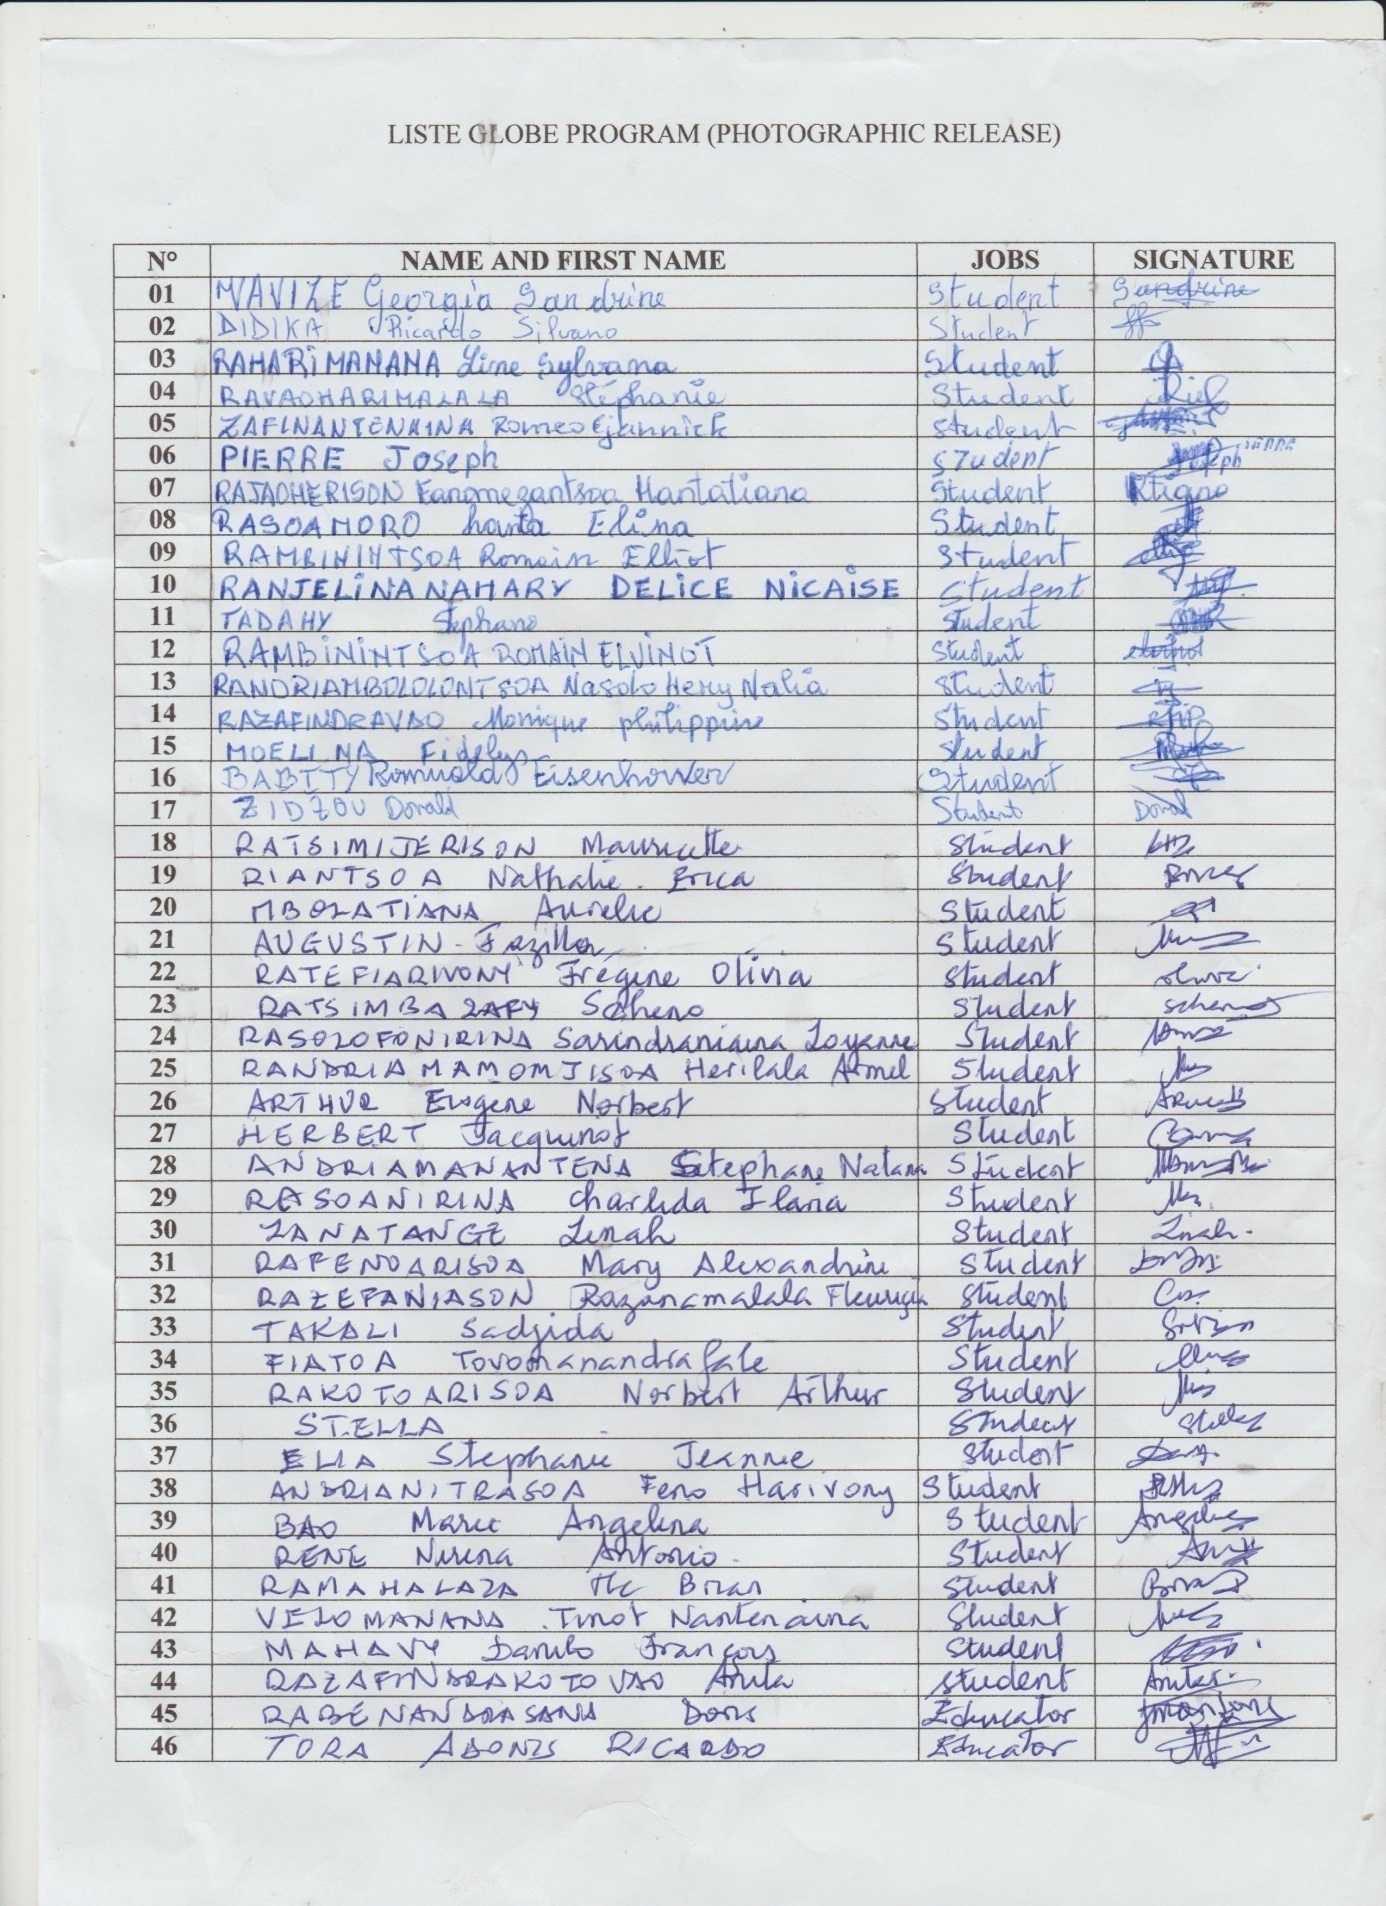 LISTE GLOBE PROGRAM (PHOTOGRAPHIC RELEASE)
N° NAME AND FIRST NAME JOBS SIGNATURE
01 MAVIZE Georgia Sandrine Student Sandrine
02 DIDIKA Ricardo Silvano Student
03 RAHARIMANANA Line Sylvana Student
04 RAVAOHARIMALALA Stéphanie Student
05 ZAFINANTENAINA Romeo Gjannick Student
06 PIERRE Joseph Student Joseph
07 RAJAOHERISON Fanomezantsoa Hantatiana Student
08 RASOAMORO hanta Elina Student
09 RAMBININTSOA Romain Elliot Student
10 RANJELINANAHARY DELICE NICAISE Student
11 TADAHY Stephano Student
12 RAMBININTSOA ROMAIN ELVINOT Student
13 RANDRIAMBOLOLONTSOA Nasolo Hery Nalia Student
14 RAZAFINDRAVAO Monique philippine Student
15 MOELINA Fidelys Student
16 BABITY Romuald Eisenhower Student
17 ZIDZOU Donald Student Donal
18 RATSIMIJERISON Mauricette Student
19 RIANTSOA Nathalie Erica Student
20 MBOLATIANA Aurelie Student
21 AUGUSTIN Fazilla Student
22 RATEFIARIVONY Fregine Olivia Student
23 RATSIMBAZAFY Scheno Student Scheno
24 RASOLOFONIRINA Sarindraniaina Loyanne Student
25 RANDRIAMAMONJISOA Herilala Armel Student
26 ARTHUR Eugene Norbert Student
27 HERBERT Jacquinot Student
28 ANDRIAMANANTENA Stephane Natana Student
29 RASOANIRINA Charlida Ilaria Student
30 ZANATANGE Linah Student Linah.
31 RAFENOARISOA Mary Alexandrine Student
32 RAZEFANIASON Razanamalala Student
33 TAKALI Sadjida Student
34 FIATOA Tovomanandrafale Student
35 RAKOTOARISOA Norbert Arthur Student
36 STELLA Student Stella
37 ELIA Stephanie Jeannie Student
38 ANDRIANITRASOA Feno Harivony Student
39 BAO Marie Angelina Student
40 RENE Nirina Antonio Student
41 RAMAHALAZA Mc Brian Student
42 VELOMANANA Tinot Nantenaina Student
43 MAHAVY Danilo François Student
44 RAZAFINDRAKOTOVAO Anita Student
45 RABENANDRASANA Doris Educator
46 TORA ADONIS RICARDO Educator